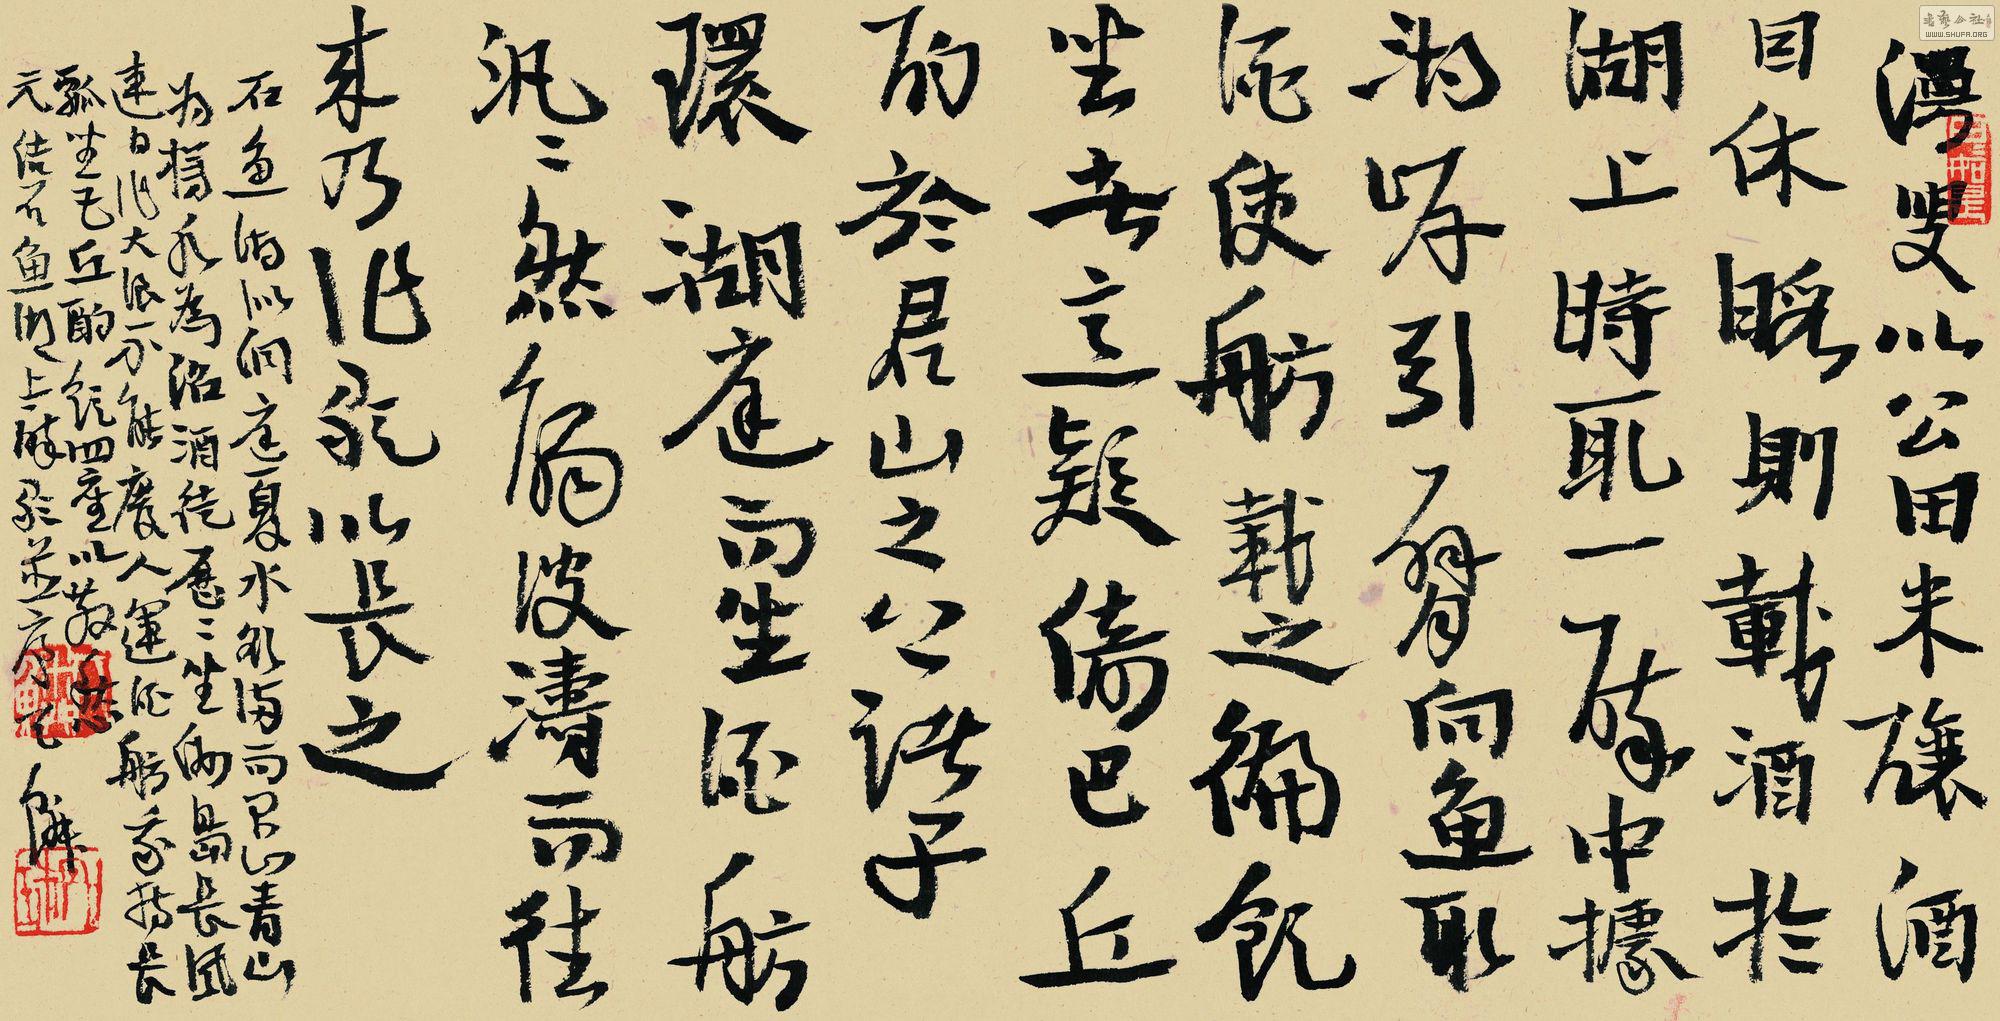 漫叟以公田米釀酒
因休暇則載酒於
湖上時取一醉中據
湖岸引臂向鱼取
酒使舫載之徧飲
坐者意疑倚巴丘
酌於君山之上諸子
環湖庭而坐酒舫
汎〻然觸波濤而往
来乃作歌以長之
石鱼湖似洞庭夏水欲滿而君山青山
为樽水為沼酒徒歷〻坐洲島長風
連日作大浪不能廢人運酒舫我持長
瓢坐巴丘酌飲四座以散愁
元結石鱼湖上醉歌並序
書藝公社
WWW.SHUFA.ORG